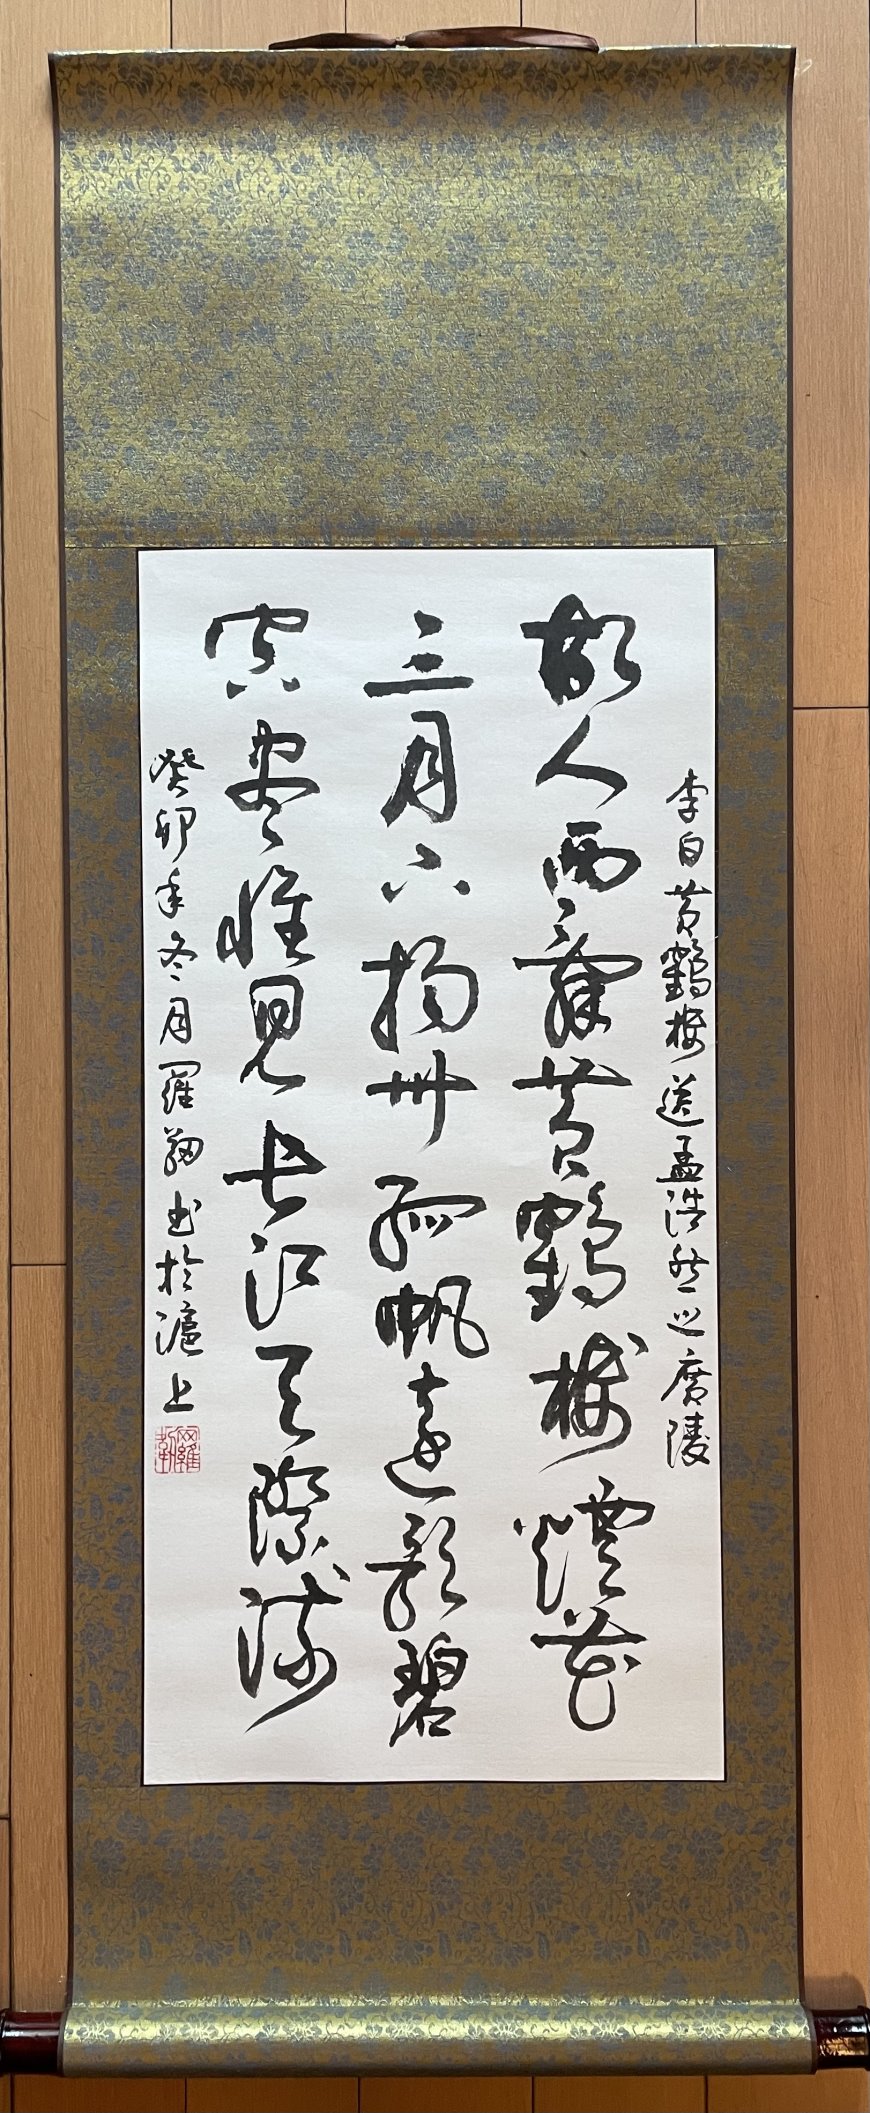 李白黃鶴樓送孟浩然之廣陵
故人西辭黃鶴樓煙花
三月下揚州孤帆遠影碧
空盡惟見長江天際流
癸卯年冬月羅勃書於滬上
羅勃